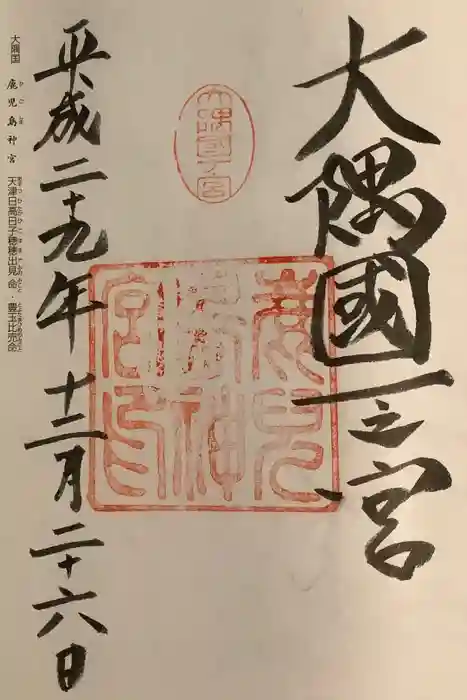 大隅國一之宮
大隅國一ノ宮
鹿兒
島神
宮印
平成二十九年十二月二十六日
大隅国 鹿児島神宮 天津日高日子穂穂出見命・豊玉比売命